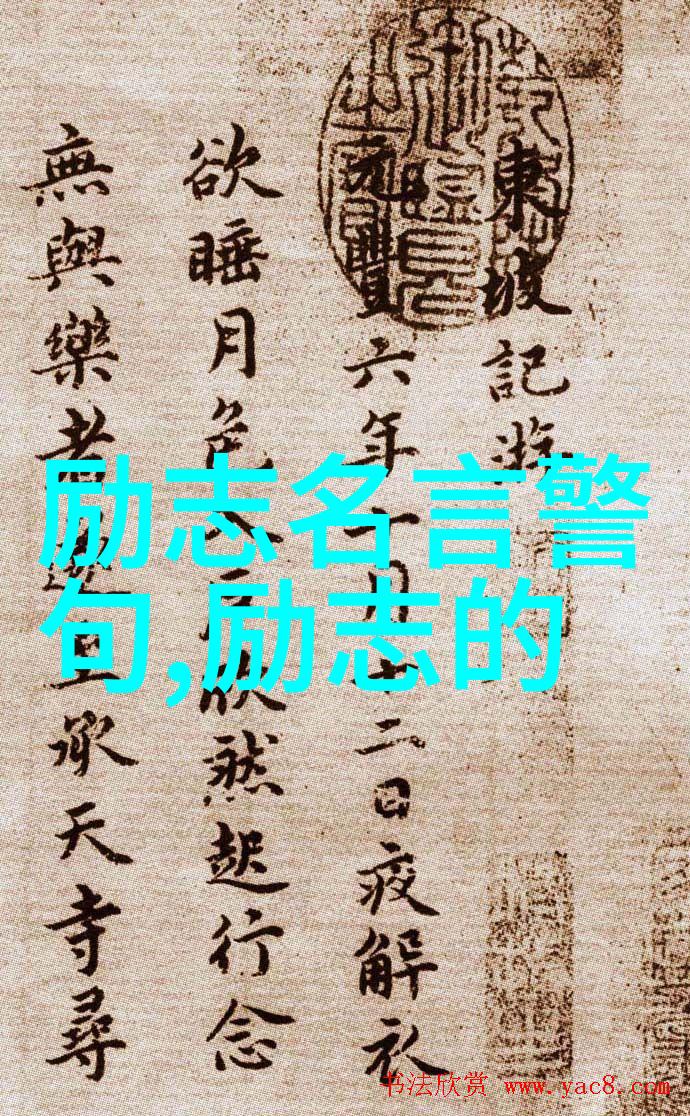 東坡記游
元豐六年十月十二日夜解衣
欲睡月色入户欣然起行念
無與樂者遂至承天寺尋
励志名言警
句,励志的
书法欣赏 www.yac8.com